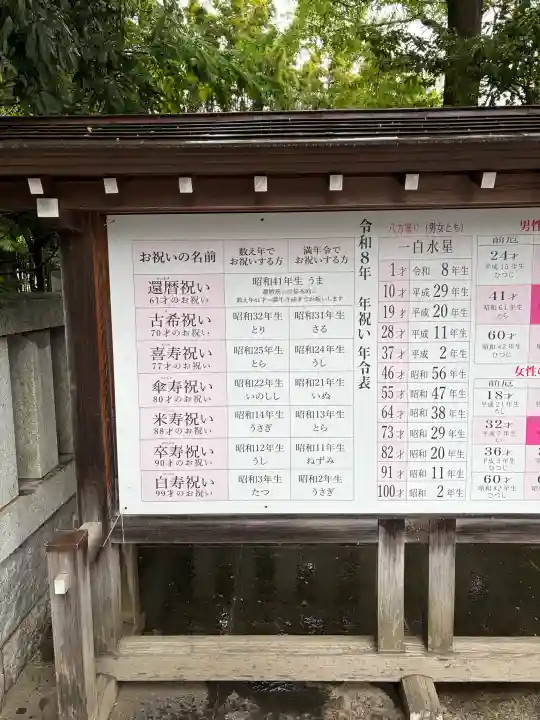 令和8年 年祝い年令表
お祝いの名前
数え年で
お祝いする方
満年令で
お祝いする方
還暦祝い
61才のお祝い
昭和41年生 うま
古希祝い
70才のお祝い
昭和32年生
とり
昭和31年生
さる
喜寿祝い
77才のお祝い
昭和25年生
とら
昭和24年生
うし
傘寿祝い
80才のお祝い
昭和22年生
いのしし
昭和21年生
いぬ
米寿祝い
88才のお祝い
昭和14年生
うさぎ
昭和13年生
とら
卒寿祝い
90才のお祝い
昭和12年生
うし
昭和11年生
ねずみ
白寿祝い
99才のお祝い
昭和3年生
たつ
昭和2年生
うさぎ
八方塞り(男女とも)
一白水星
1才 令和 8年生
10才 平成 29年生
19才 平成 20年生
28才 平成 11年生
37才 平成 2年生
46才 昭和 56年生
55才 昭和 47年生
64才 昭和 38年生
73才 昭和 29年生
82才 昭和 20年生
91才 昭和 11年生
100才 昭和 2年生
男性
前厄
24才
平成15年生
ひつじ
41才
昭和61年生
とら
60才
昭和42年生
ひつじ
女性の
前厄
18才
平成21年生
うし
32才
平成7年生
36才
平成3年生
ひつじ
60才
昭和42年生
ひつじ